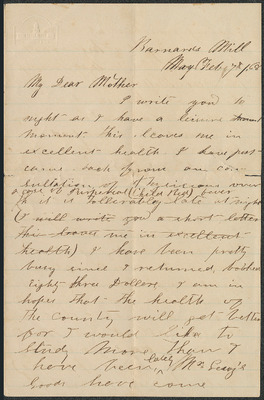 Barnards Mill
Feby 7th
My Dear Mother
I write you to
night as I have a leisure
moment this leaves me in
excellent health I have just
came back from an con
sultation of Physicians over
a case of Puerperal (Child Bed) fever
& it is tollerably late at night
(I will write you a short letter
this leaves me in excellent
health) I have been pretty
busy since I returned, booked
Eighty three Dollars. I am in
hopes that the health of
the County will get better
for I would like to
Study More than I
have been lately Mr
Goods have come